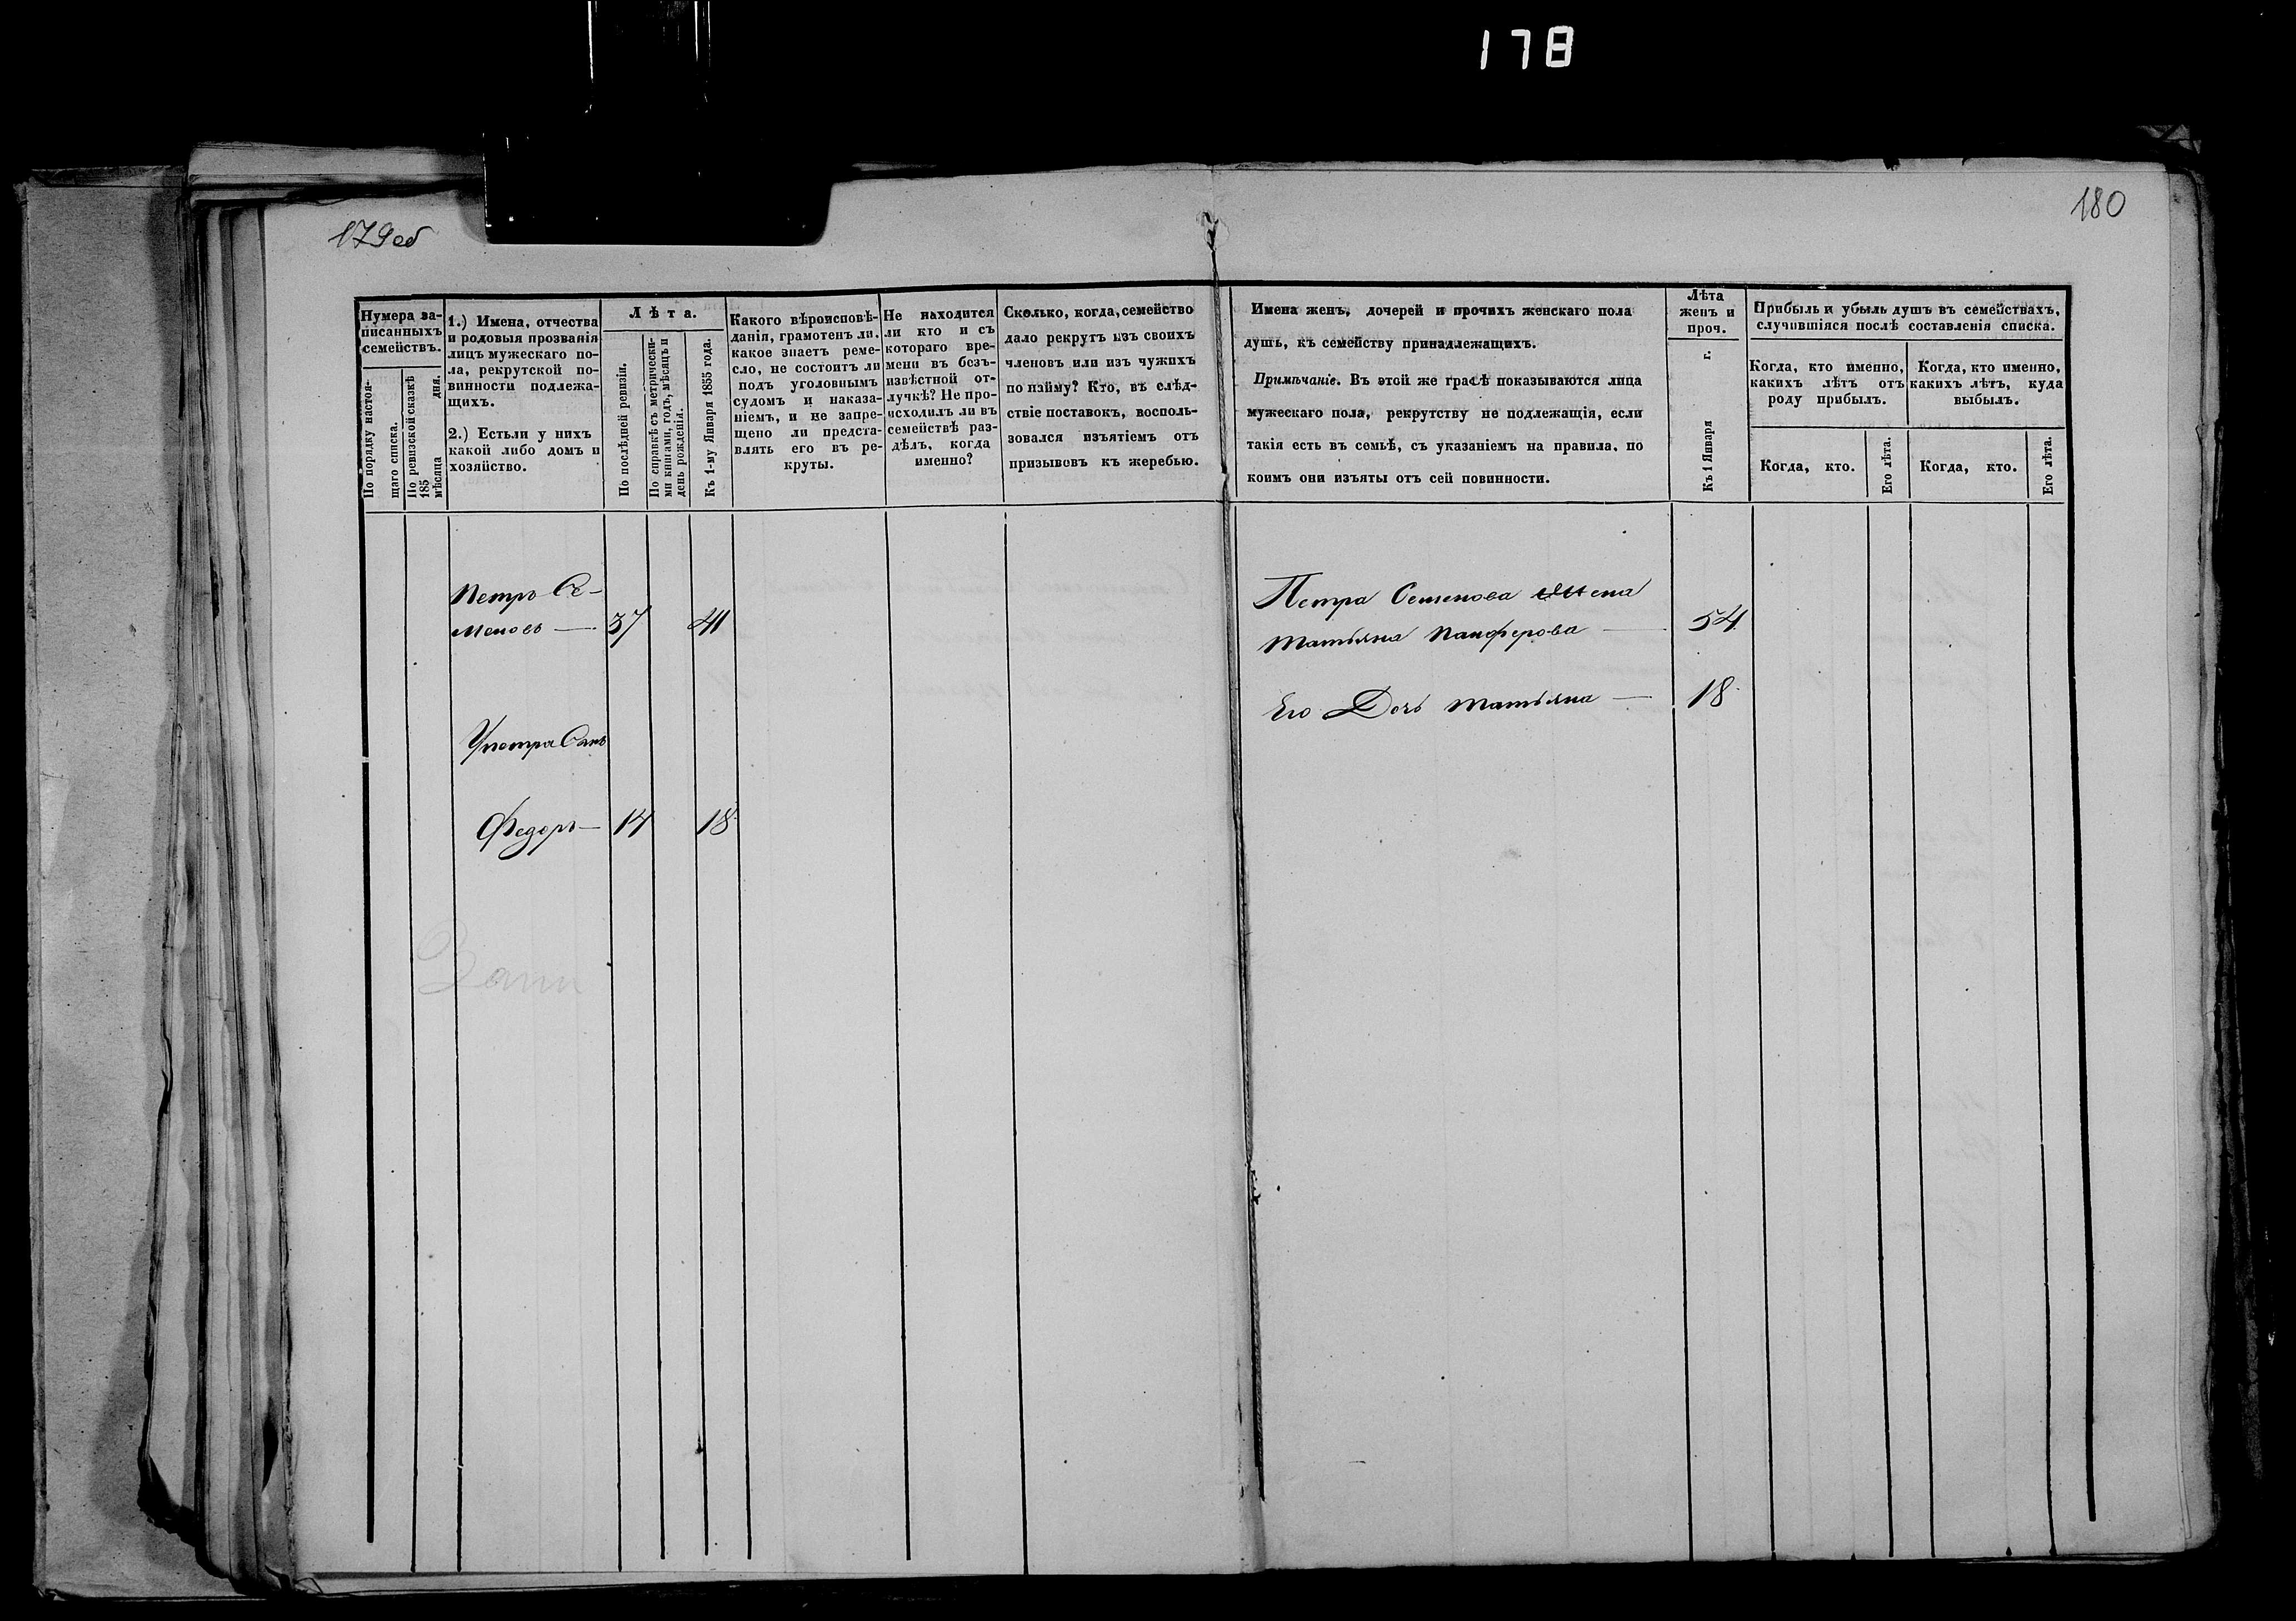 178
179об
180
Нумера за-
писанныхъ
семействъ.
По порядку настоя-
щаго списка.
По ревизской сказкѣ
185
мѣсяца дня.
1.) Имена, отчества
и родовыя прозванія
лицъ мужескаго по-
ла, рекрутской по-
винности подлежа-
щихъ.
2.) Естьли у нихъ
какой либо домъ и
хозяйство.
Лѣта.
По послѣдней ревизіи.
По справкѣ съ метрически-
ми книгами, годъ, мѣсяцъ и
день рожденія.
Къ 1-му Января 1855 года.
Какого вѣроисповѣ-
данія, грамотенъ ли.
какое знаетъ реме-
сло, не состоитъ ли
подъ уголовнымъ
судомъ и наказа-
ніемъ, и не запре-
щено ли предста-
влять его въ ре-
круты.
Не находится
ли кто и съ
котораго вре-
мени въ безъ-
извѣстной от-
лучкѣ? Не про-
исходилъ ли въ
семействѣ раз-
дѣлъ, когда
именно?
Сколько, когда, семейство
дало рекрутъ изъ своихъ
членовъ или изъ чужихъ
по найму? Кто, въ слѣд-
ствіе поставокъ, восполь-
зовался изъятіемъ отъ
призывовъ къ жеребью.
Имена женъ, дочерей и прочихъ женскаго пола
душъ, къ семейству принадлежащихъ.
Примѣчаніе. Въ этой же графѣ показываются лица
мужескаго пола, рекрутству не подлежащія, если
такія есть въ семьѣ, съ указаніемъ на правила, по
коимъ они изъяты отъ сей повинности.
Лѣта
женъ и
проч.
Къ 1 Января г.
Прибыль и убыль душъ въ семействахъ,
случившіяся послѣ составленія списка.
Когда, кто именно,
какихъ лѣтъ отъ
роду прибылъ.
Когда, кто именно,
какихъ лѣтъ, куда
выбылъ.
Когда, кто.
Его лѣта.
Когда, кто.
Его лѣта.
Петръ Се-
меновъ — 37 41
У петра Сынъ
Федоръ — 14 18
Петра Семенова Жена
Татьяна Панферова — 54
Его Дочь Татьяна — 18